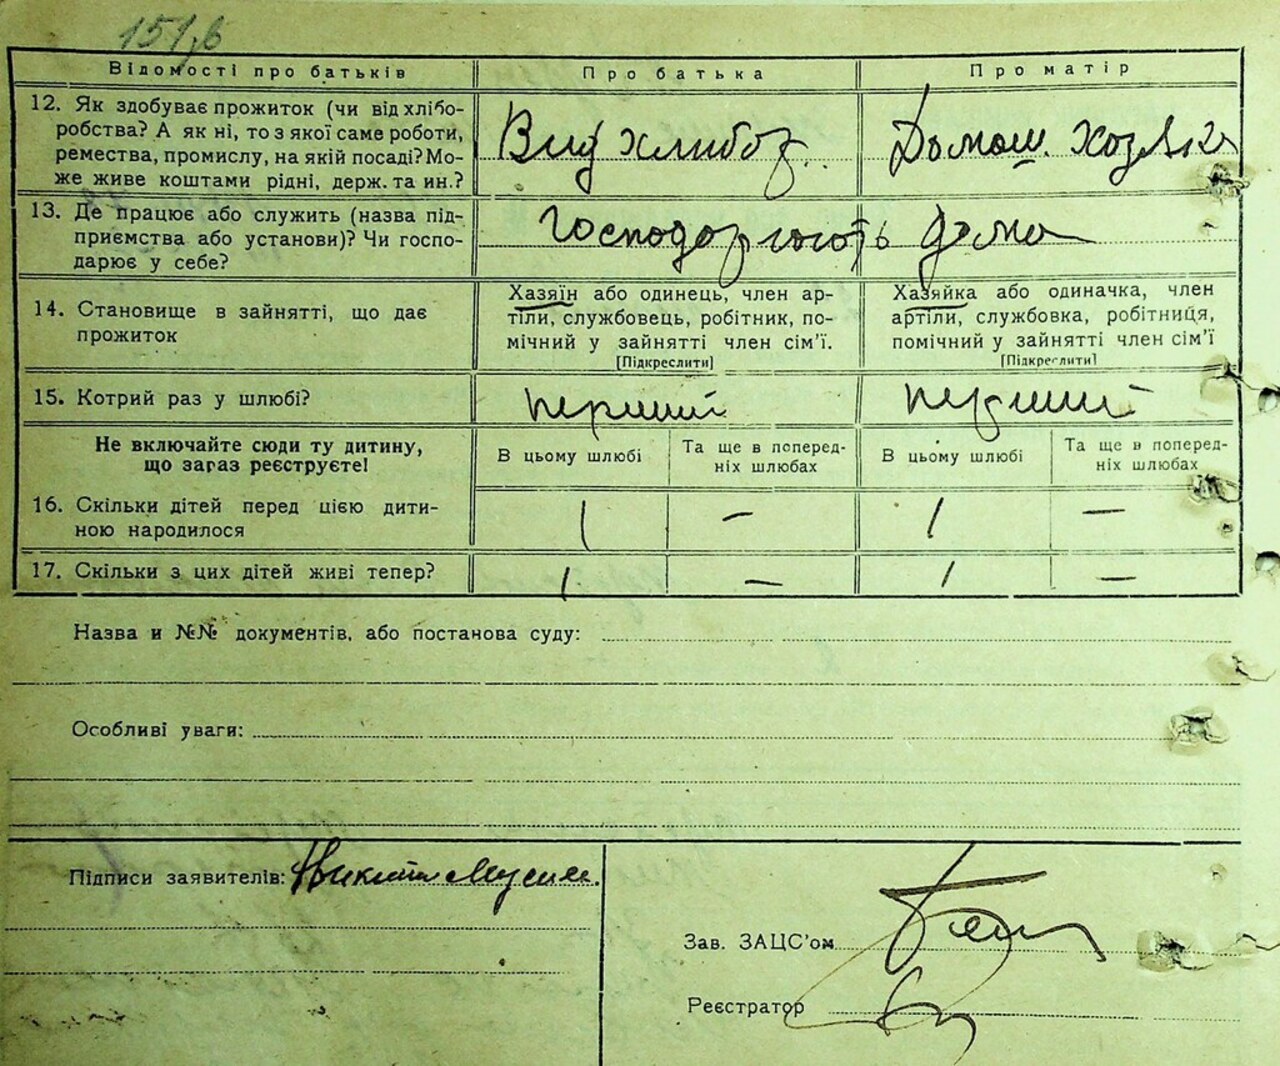 151,в
Відомості про батьків Про батька Про матір
12. Як здобуває прожиток (чи від хлібо-
робства? А як ні, то з якої саме роботи,
ремества, промислу, на якій посаді? Мо-
же живе коштами рідні, держ. та ин.?
Вид хлибор. Домаш. хозяйка
13. Де працює або служить (назва під-
приємства або установи)? Чи госпо-
дарює у себе?
господарюють дома
14. Становище в зайнятті, що дає
прожиток
Хазяїн або одинець, член ар-
тіли, службовець, робітник, по-
мічний у зайнятті член сім'ї.
[Підкреслити]
Хазяйка або одиначка, член
артіли, службовка, робітниця,
помічний у зайнятті член сім'ї
[Підкреслити]
15. Котрий раз у шлюбі? перший перший
Не включайте сюди ту дитину,
що зараз реєструєте!
В цьому шлюбі
Та ще в поперед-
ніх шлюбах
В цьому шлюбі
Та ще в поперед-
ніх шлюбах
16. Скільки дітей перед цією дити-
ною народилося
1 — 1 —
17. Скільки з цих дітей живі тепер? 1 — 1 —
Назва и №№ документів, або постанова суду:
Особливі уваги:
Підписи заявителів: Никита
Зав. ЗАЦС'ом
Реєстратор